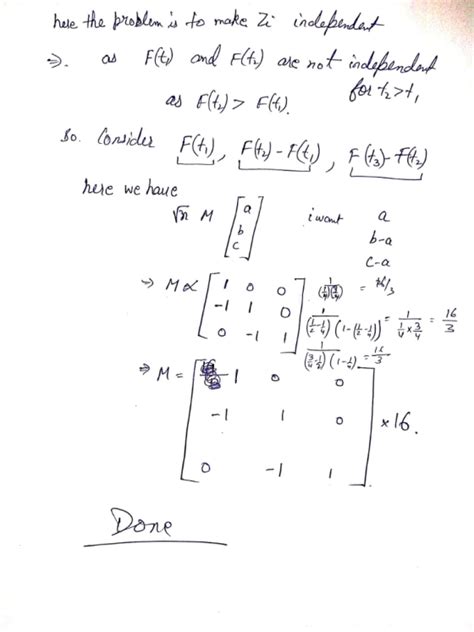 here the problem is to make Zi independent
⇒. as F(t₁) and F(t₂) are not independent
for t₂>t₁
as F(t₂) > F(t₁).
So. Consider F(t₁), F(t₂)-F(t₁), F(t₃)-F(t₂)
here we have
√n M [a b c] i want a
b-a
c-a
⇒ M ∝ [1 0 0 1/(1/4)(3/4) = 16/3
-1 1 0 1/(1/2-1/4)(1-(1/2-1/4)) = 1/(1/4×3/4) = 16/3
0 -1 1] 1/(3/4-1/2)(1-1/4) = 16/3
⇒ M = [1 0 0
-1 1 0 ×16.
0 -1 1]
Done